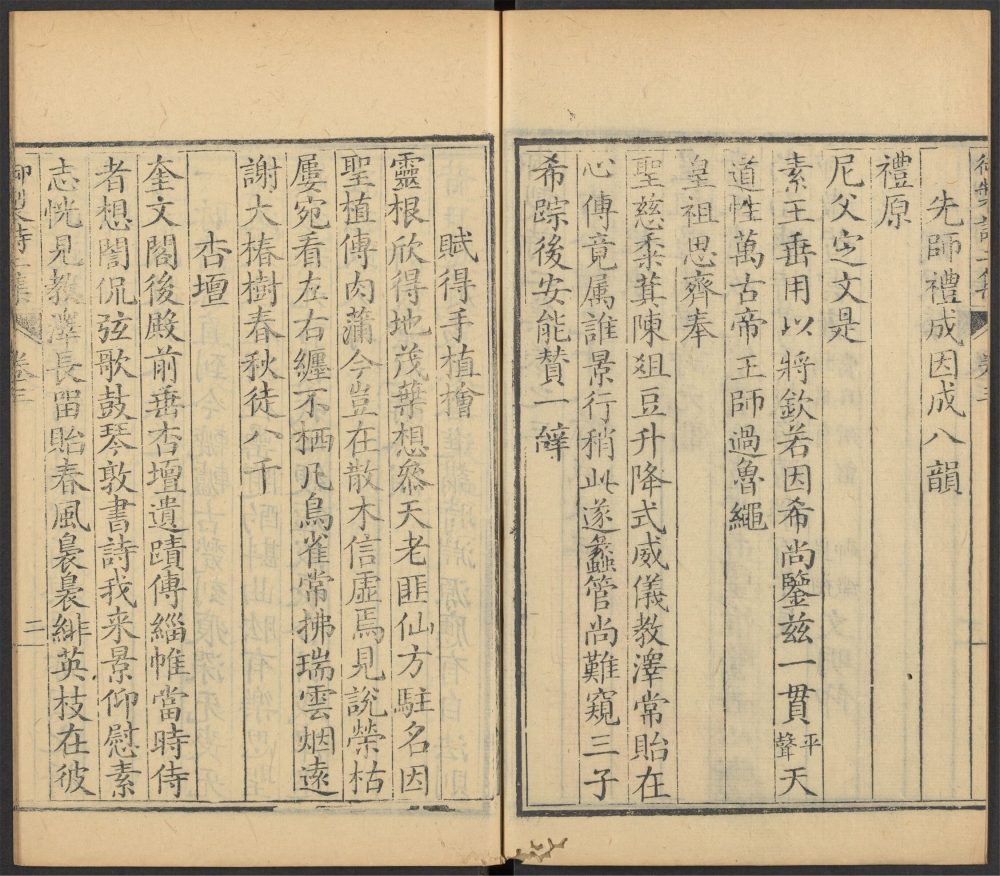 先師禮成因成八韻
禮原
尼父定文是
素王垂用以將欽若因希尚鑒兹一貫平聲天
道性萬古帝王師過魯繩
皇祖思齊奉
聖慈黍萁陳爼豆升降式威儀教澤常貽在
心傳竟属誰景行稍此遂蠡管尚難窺三子
希踪後安能贊一辭
賦得手植檜
靈根欣得地茂葉想叅天老匪仙方駐名因
聖植傳肉蒲今豈在散木信虛焉見說榮枯
屢宛看左右纏不栖凡鳥雀常拂瑞雲烟遠
謝大椿樹春秋徒八千
杏壇
奎文閣後殿前垂杏壇遺蹟傳緇帷當時侍
者想誾侃弦歌鼓琴敦書詩我来景仰慰素
志恍見教澤長留貽春風裊裊緋英枝在彼
御製詩二集
卷三
二